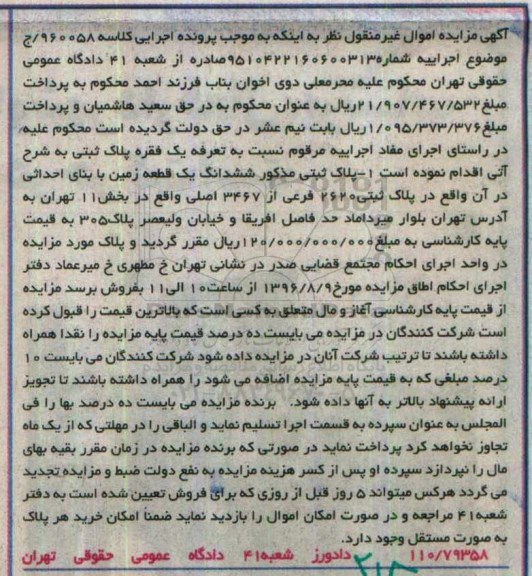 آگهی مزایده اموال غیرمنقول نظر به اینکه به موجب پرونده اجرایی کلاسه ۹۶۰۰۵۸/ج
موضوع اجراییه شماره۹۵۱۰۴۲۲۱۶۰۶۰۰۳۱۳صادره از شعبه ۴۱ دادگاه عمومی
حقوقی تهران محکوم علیه محرمعلی دوی اخوان بناب فرزند احمد محکوم به پرداخت
مبلغ۲۱/۹۰۷/۴۶۷/۵۳۲ریال به عنوان محکوم به در حق سعید هاشمیان و پرداخت
مبلغ۱/۰۹۵/۳۷۳/۳۷۶ریال بابت نیم عشر در حق دولت گردیده است محکوم علیه
در راستای اجرای مفاد اجراییه مرقوم نسبت به تعرفه یک فقره پلاک ثبتی به شرح
آتی اقدام نموده است ۱-پلاک ثبتی مذکور ششدانگ یک قطعه زمین با بنای احداثی
در آن واقع در پلاک ثبتی۲۶۱۰ فرعی از ۳۴۶۷ اصلی واقع در بخش۱۱ تهران به
آدرس تهران بلوار میرداماد حد فاصل افریقا و خیابان ولیعصر پلاک۳۰۵ به قیمت
پایه کارشناسی به مبلغ۱۲۰/۰۰۰/۰۰۰/۰۰۰ریال مقرر گردید و پلاک مورد مزایده
در واحد اجرای احکام مجتمع قضایی صدر در نشانی تهران خ مطهری خ میرعماد دفتر
اجرای احکام اطاق مزایده مورخ۱۳۹۶/۸/۹ از ساعت۱۰ الی۱۱ بفروش برسد مزایده
از قیمت پایه کارشناسی آغاز و مال متعلق به کسی است که بالاترین قیمت را قبول کرده
است شرکت کنندگان در مزایده می بایست ده درصد قیمت پایه مزایده را نقدا همراه
داشته باشند تا ترتیب شرکت آنان در مزایده داده شود شرکت کنندگان می بایست ۱۰
درصد مبلغی که به قیمت پایه مزایده اضافه می شود را همراه داشته باشند تا تجویز
ارائه پیشنهاد بالاتر به آنها داده شود. برنده مزایده می بایست ده درصد بها را فی
المجلس به عنوان سپرده به قسمت اجرا تسلیم نماید و الباقی را در مهلتی که از یک ماه
تجاوز نخواهد کرد پرداخت نماید در صورتی که برنده مزایده در زمان مقرر بقیه بهای
مال را نپردازد سپرده او پس از کسر هزینه مزایده به نفع دولت ضبط و مزایده تجدید
می گردد هرکس میتواند ۵ روز قبل از روزی که برای فروش تعیین شده است به دفتر
شعبه۴۱ مراجعه و در صورت امکان اموال را بازدید نماید ضمنا امکان خرید هر پلاک
به صورت مستقل وجود دارد.
۱۱۰/۷۹۳۵۸ دادورز شعبه۴۱ دادگاه عمومی حقوقی تهران